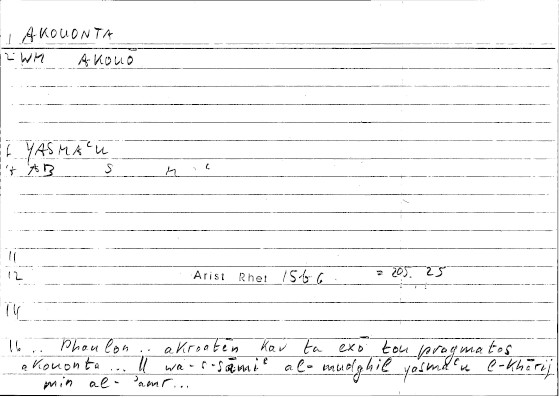 1 AKOUONTA
2 WM AKOUŌ
6 YASMAᶜU
7 AB S M ᶜ
11
12 Arist Rhet 1566 = 205. 25
14
16 .. phaulon .. akroatēn kav ta exō tou pragmatos
akouonta ... || wa-s-sāmiᶜ al-mudghil yasmaᶜu l-khārij
min al-'amr...